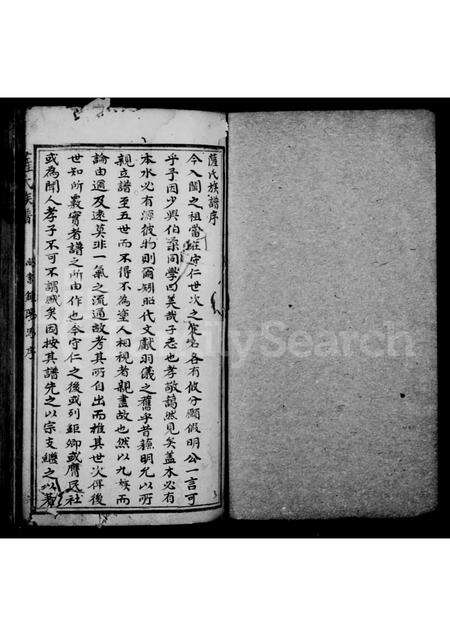 薩氏族譜序
今入閩之祖當班守仁世次之定名各有攸分願假明公一言可
乎予因少與伯梁同學曰美哉子志也孝敬藹然見矣蓋木必有
本水必有源彼物則爾矧昭代文獻羽儀之舊乎昔蘇明允以所
親立譜至五世而不得不為塗人相視者親盡故也然以九族而
論由邇及遠莫非一氣之流通故考其所自出而推其世次俾後
世知所嚴實者譜之所由作也今守仁之後或列鉅卿或膺民社
或為聞人孝子不可不謂賢矣因按其譜先之以宗支繼之以著
薩氏族譜
序
FamilySearch